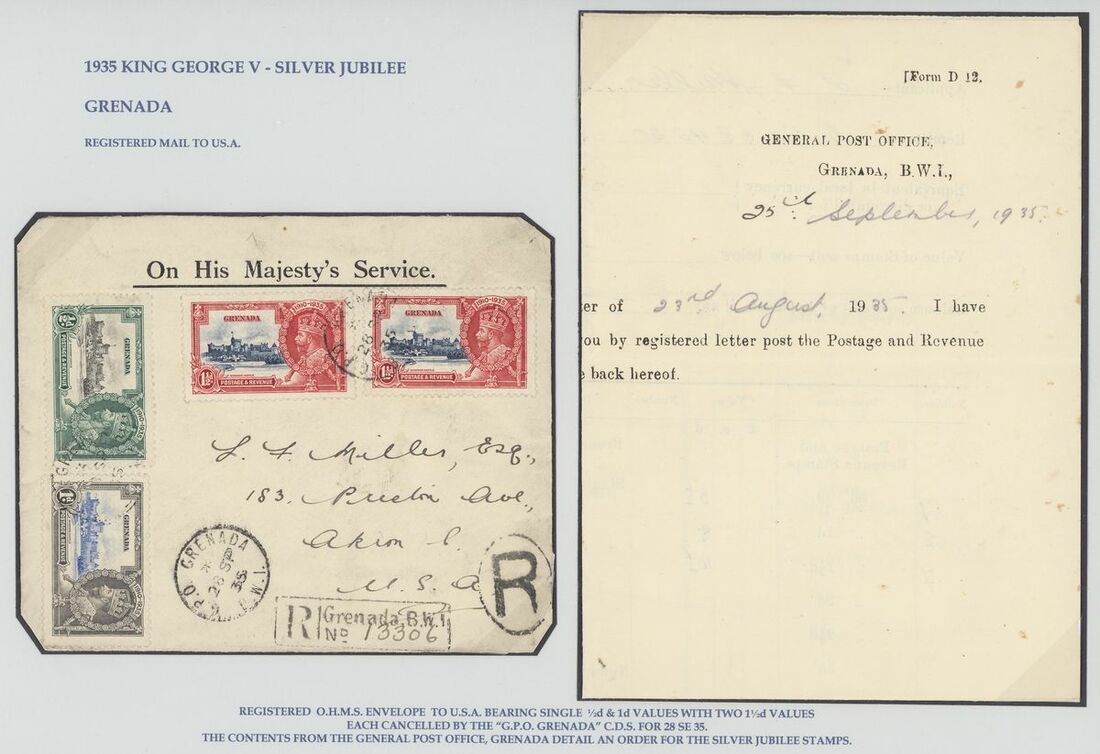 1935 KING GEORGE V - SILVER JUBILEE
GRENADA
REGISTERED MAIL TO U.S.A.
On His Majesty's Service.
GRENADA
POSTAGE & REVENUE
1910-1935
½D
GRENADA
1910-1935
POSTAGE & REVENUE
1½D
GRENADA
1910-1935
POSTAGE & REVENUE
1½D
GRENADA
POSTAGE & REVENUE
1910-1935
1D
L. F. Miller, Esq.,
183, Preston Ave.,
Akron
U.S.A.
G.P.O. GRENADA
28 SP
35
R
R Grenada B.W.I.
No 13306
[Form D 12.
GENERAL POST OFFICE,
GRENADA, B.W.I.,
25th September, 1935.
er of 23rd August, 1935. I have
ou by registered letter post the Postage and Revenue
e back hereof.
REGISTERED O.H.M.S. ENVELOPE TO U.S.A. BEARING SINGLE ½d & 1d VALUES WITH TWO 1½d VALUES
EACH CANCELLED BY THE "G.P.O. GRENADA" C.D.S. FOR 28 SE 35.
THE CONTENTS FROM THE GENERAL POST OFFICE, GRENADA DETAIL AN ORDER FOR THE SILVER JUBILEE STAMPS.